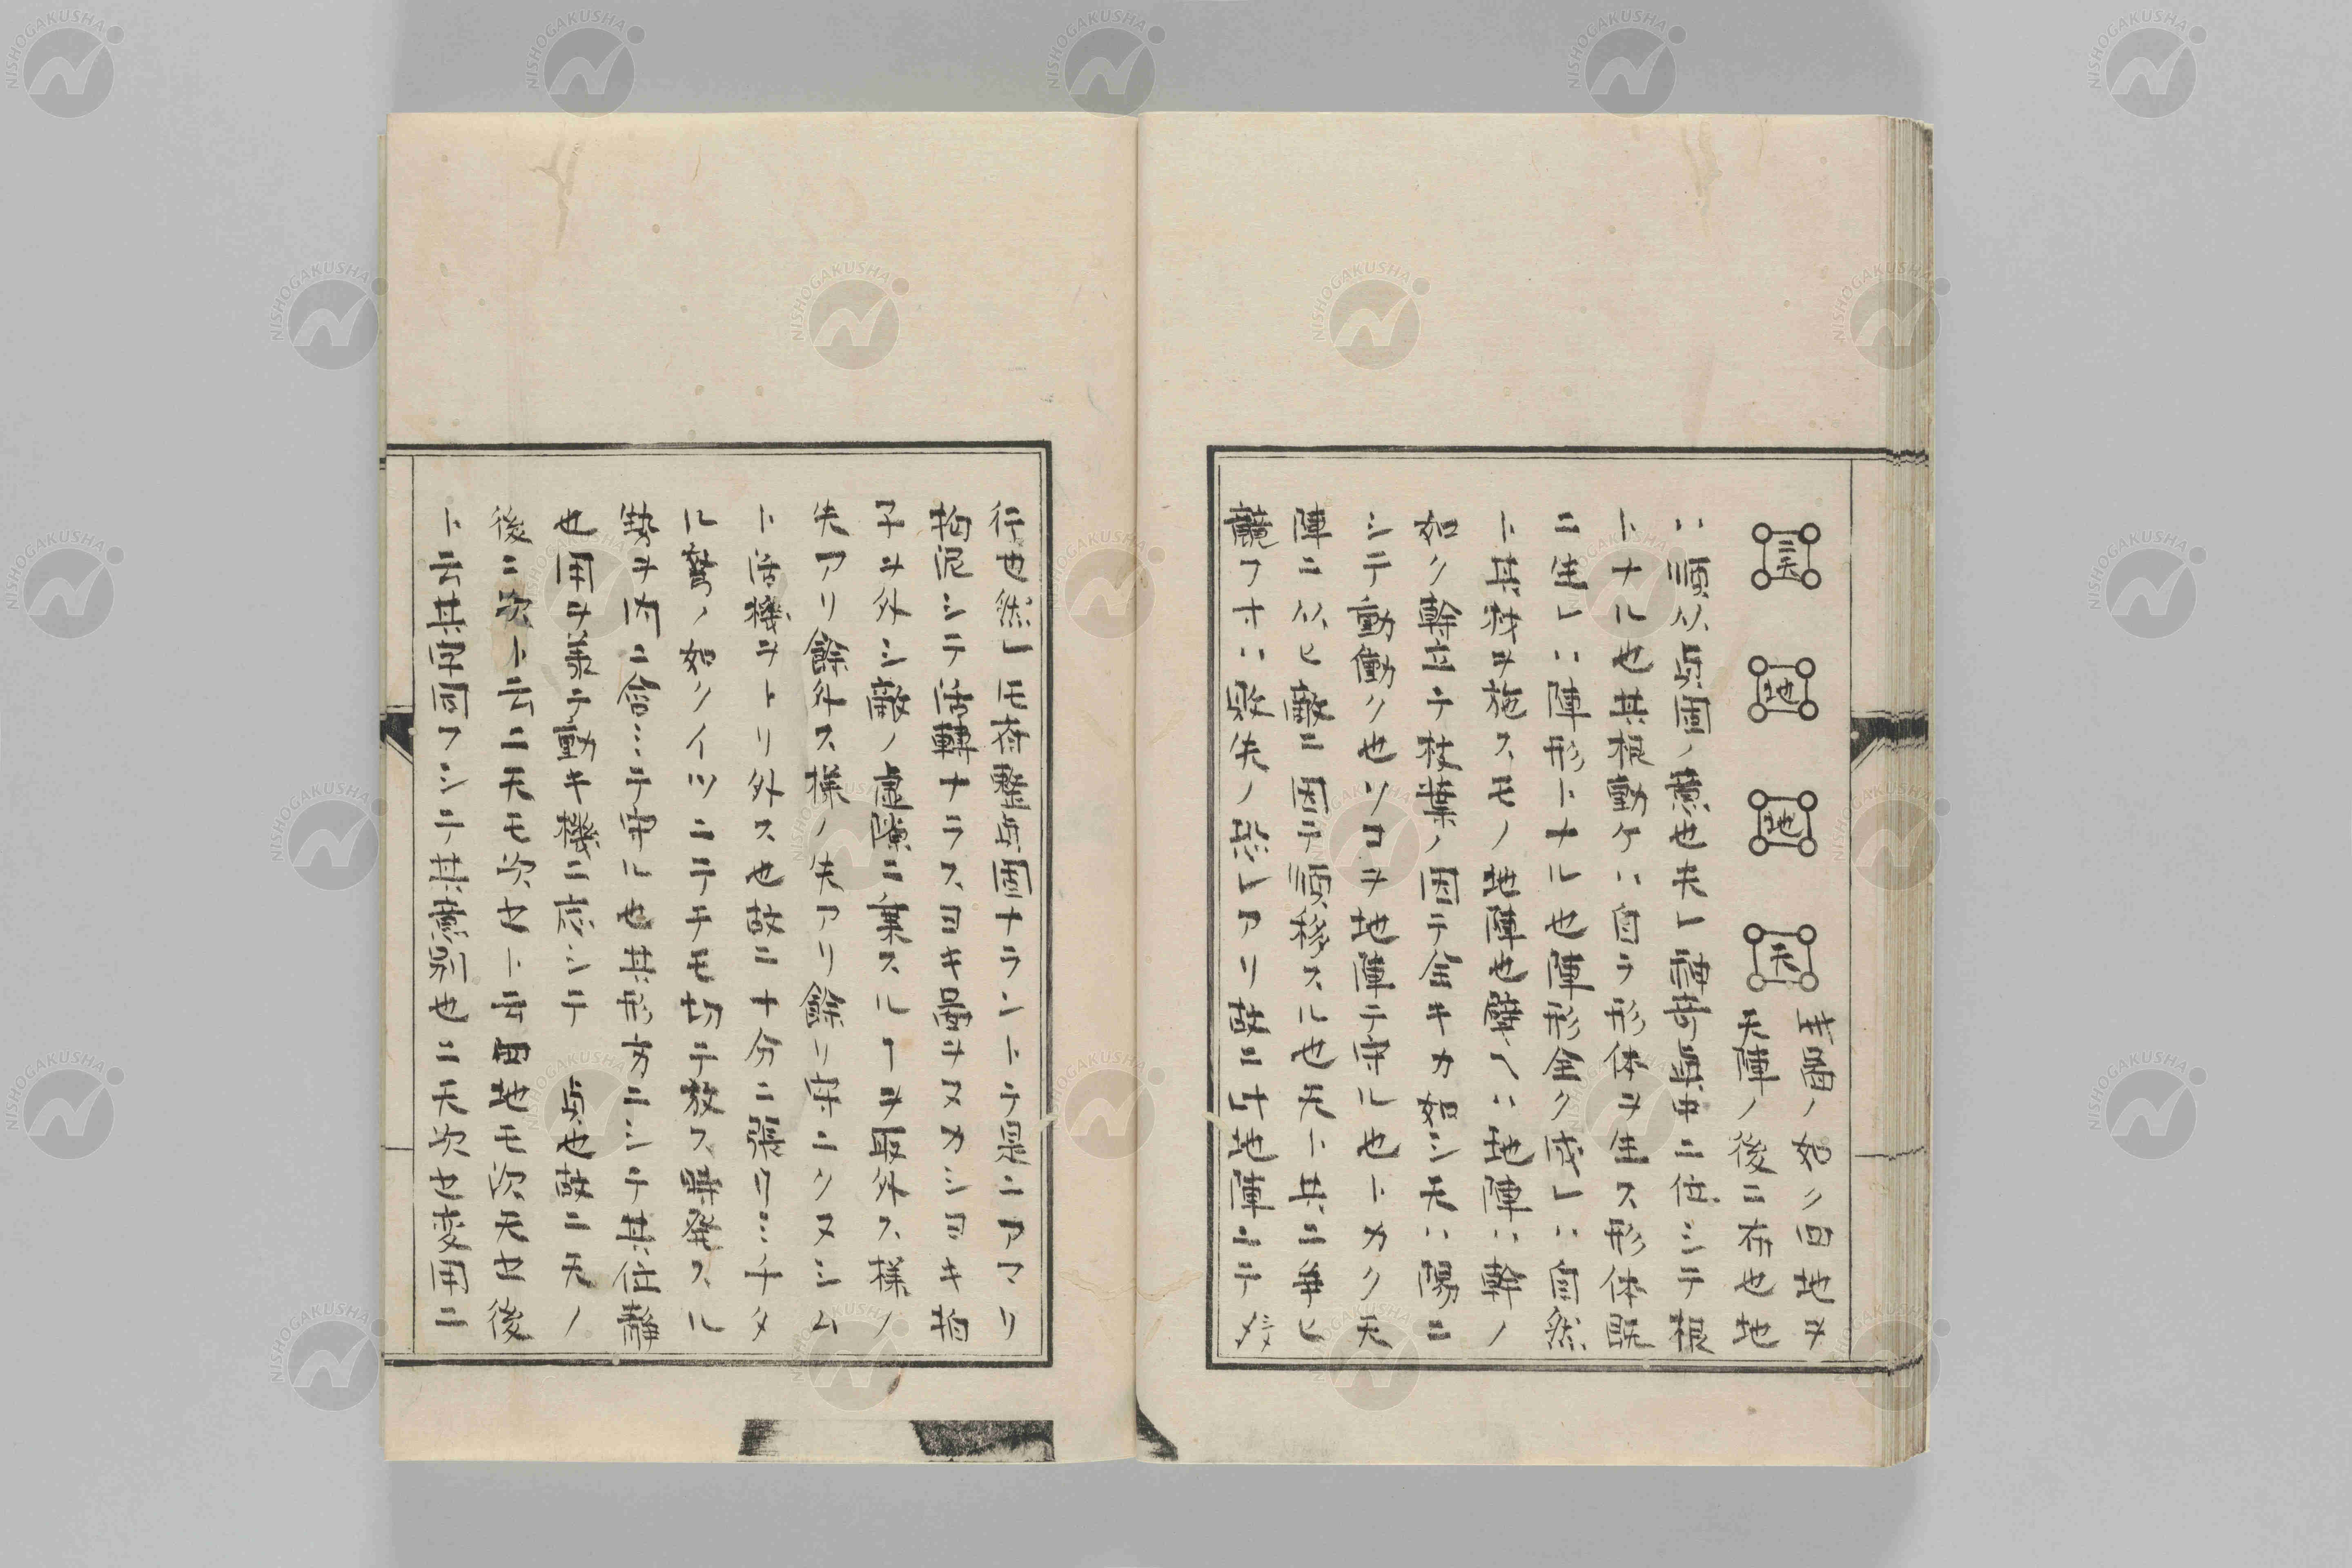 天 地 地 天 其圖ノ如ク四地ヲ
天陣ノ後ニ布也地
ハ順从貞固ノ意也夫レ禆奇兵中ニ位シテ根
トナル也其根動ケハ自ラ形体ヲ生ス形体既
ニ生レハ陣形トナル也陣形全ク成レハ自然
ト其技ヲ施スモノ地陣也譬ヘハ地陣ハ幹ノ
如ク幹立テ枝葉ノ因テ全キカ如シ天ハ陽ニ
シテ動働ク也ソコヲ地陣テ守ル也トカク天
陣ニ从ヒ敵ニ因テ順移スル也天ト共ニ争ヒ
競フナハ敗失ノ恐レアリ故ニ地陣ニテ
行也然レ圧持整貞固ナラントテ是ニアマリ
拘泥シテ活轉ナラスヨキ圖ヲヌカシヨキ拍
子ヲ外シ敵ノ虚隙ニ乗スルヿヲ取外ス様ノ
失アリ餘外ス様ノ失アリ餘リ守ニクヌシム
ト活機ヲトリ外ス也故ニ十分ニ張リ…チタ
ル弩ノ如クイツニテモ切テ放ス時発スル
勢ヲ内ニ含…テ守ル也其形方ニシテ其位静
也用ヲ兼テ動キ機ニ応シテ 貞也故ニ天ノ
後ニ次ト云ニ天モ次セト云四地モ次天セ後
ト云其字同フシテ其意別也ニ天次セ変用ニ